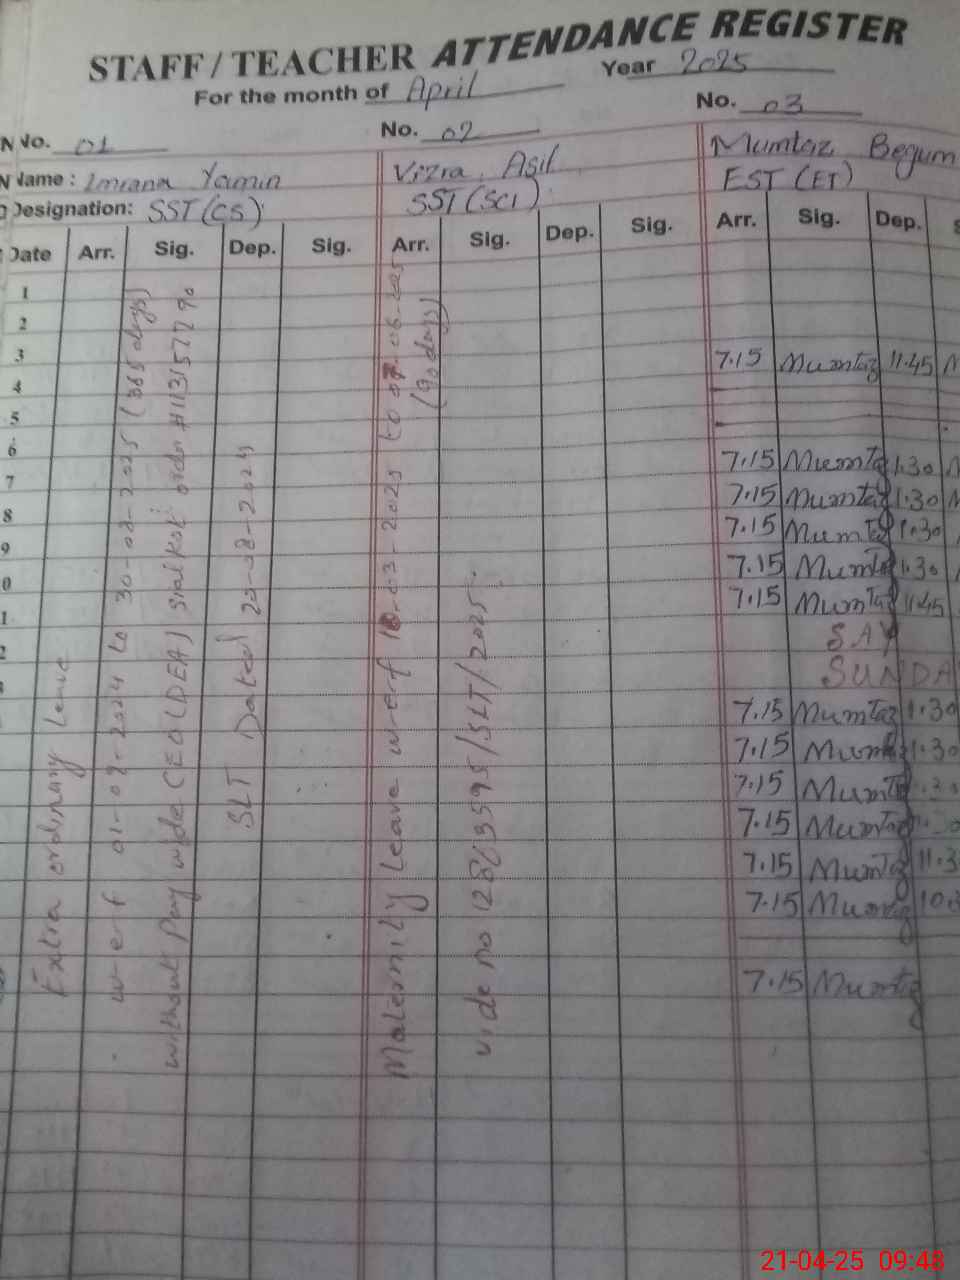 STAFF / TEACHER ATTENDANCE REGISTER
For the month of April Year 2025
No. 01 No. 02 No. 03
Name : Imrana Yamin Vizra Asif Mumtaz Begum
Designation: SST (CS) SST (SCI) EST (ET)
Date Arr. Sig. Dep. Sig. Arr. Sig. Dep. Sig. Arr. Sig. Dep.
1
2
3 7.15 Mumtaz 11.45
4
5
6
7 7.15 Mumtaz 1.30
8 7.15 Mumtaz 1.30
9 7.15 Mumtaz 1.30
0 7.15 Mumtaz 1.30
1 7.15 Mumtaz 11.45
2 SAY
SUNDA
7.15 Mumtaz 1.30
7.15 Mumtaz 1.30
7.15 Mumtaz 1.30
7.15 Mumtaz
7.15 Mumtaz 11.3
7.15 Mumtaz 10.
7.15 Mumtaz
Extra ordinary Leave
w-e-f 01-09-2024 to 30-08-2025 (365 days)
without Pay vide CEO (DEA) Sialkot order #11315772 90
SLT Dated 20-08-2024
Maternity Leave w-e-f 10-03-2025 to 07-06-2025
(90 days)
vide no 1286/3595/SLT/2025.
21-04-25 09:48